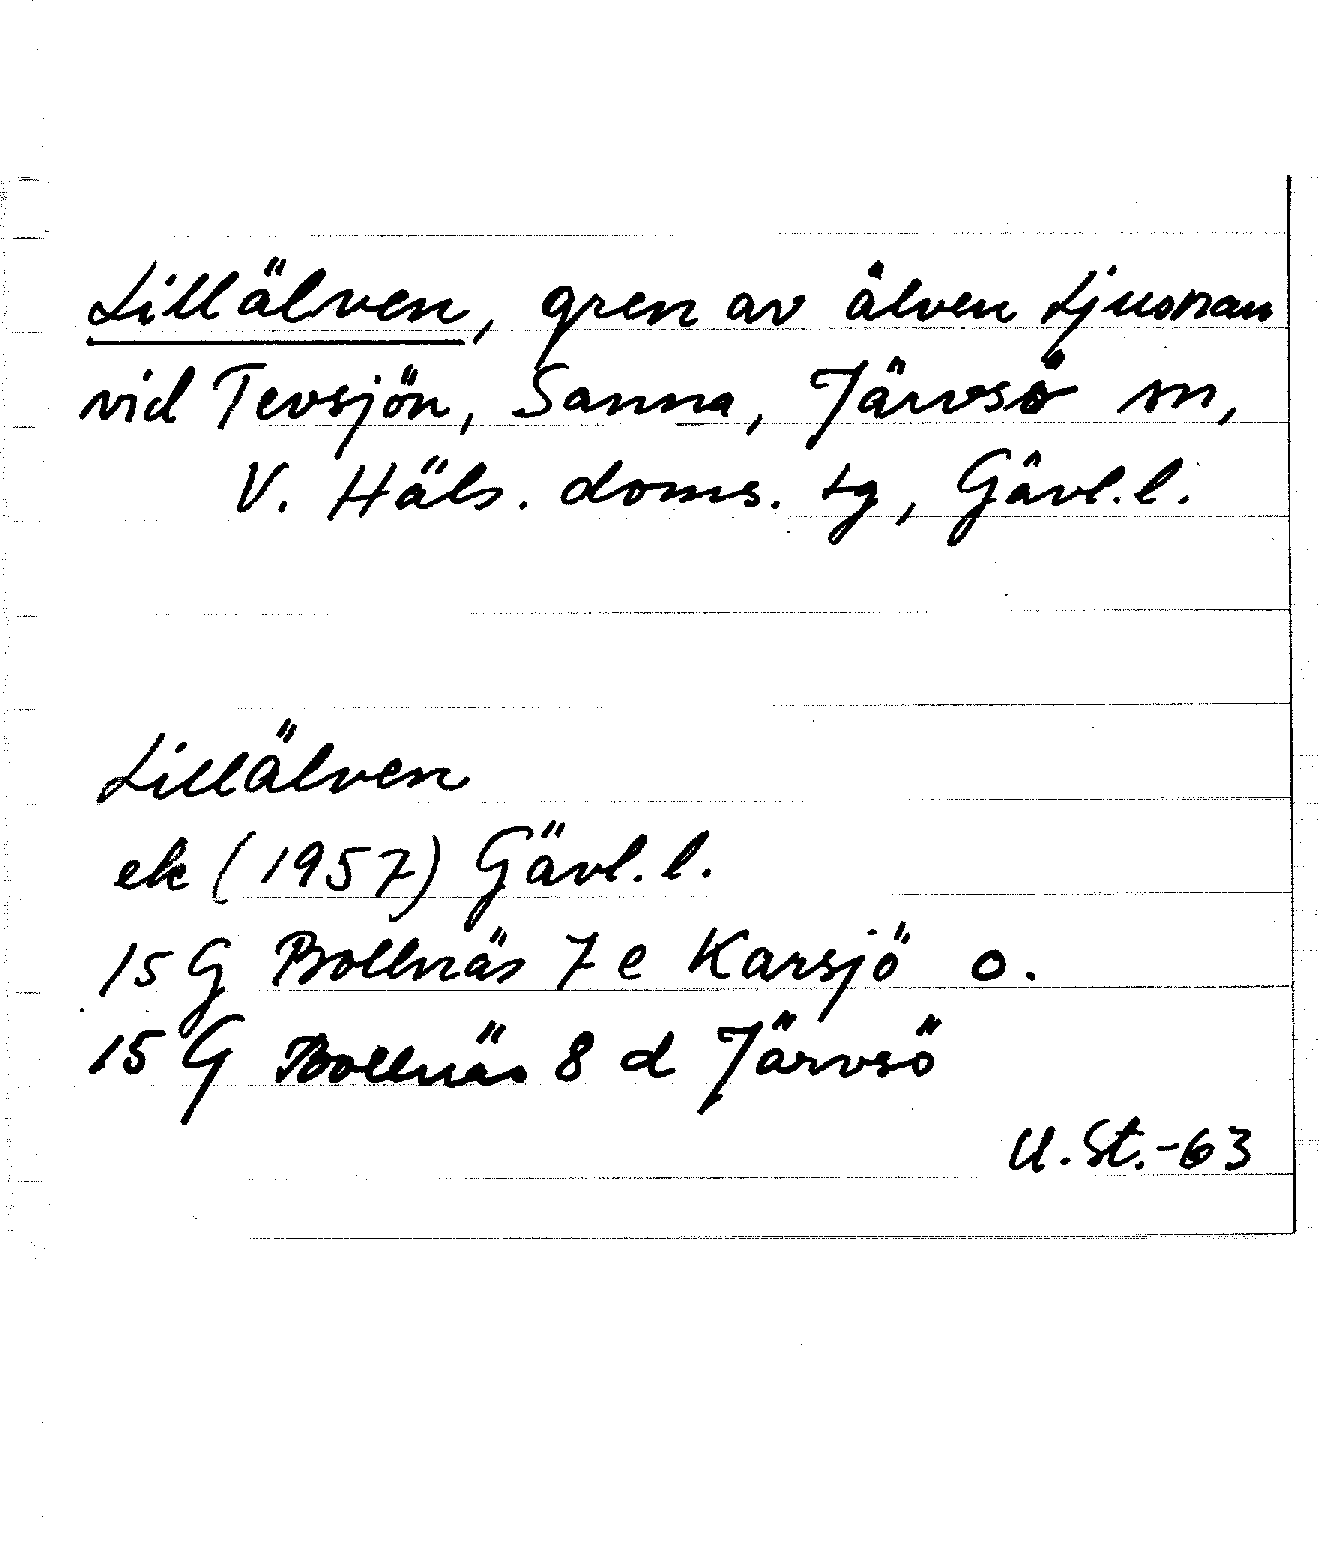 Lillälven, gren av älven Ljusnan
vid Tevsjön, Sanna, Järvsö sn,
V. Häls. doms. tg, Gävl.l.
Lillälven
ek (1957) Gävl.l.
15 G Bollnäs 7 e Karsjö o.
15 G Bollnäs 8 d Järvsö
U.St.-63